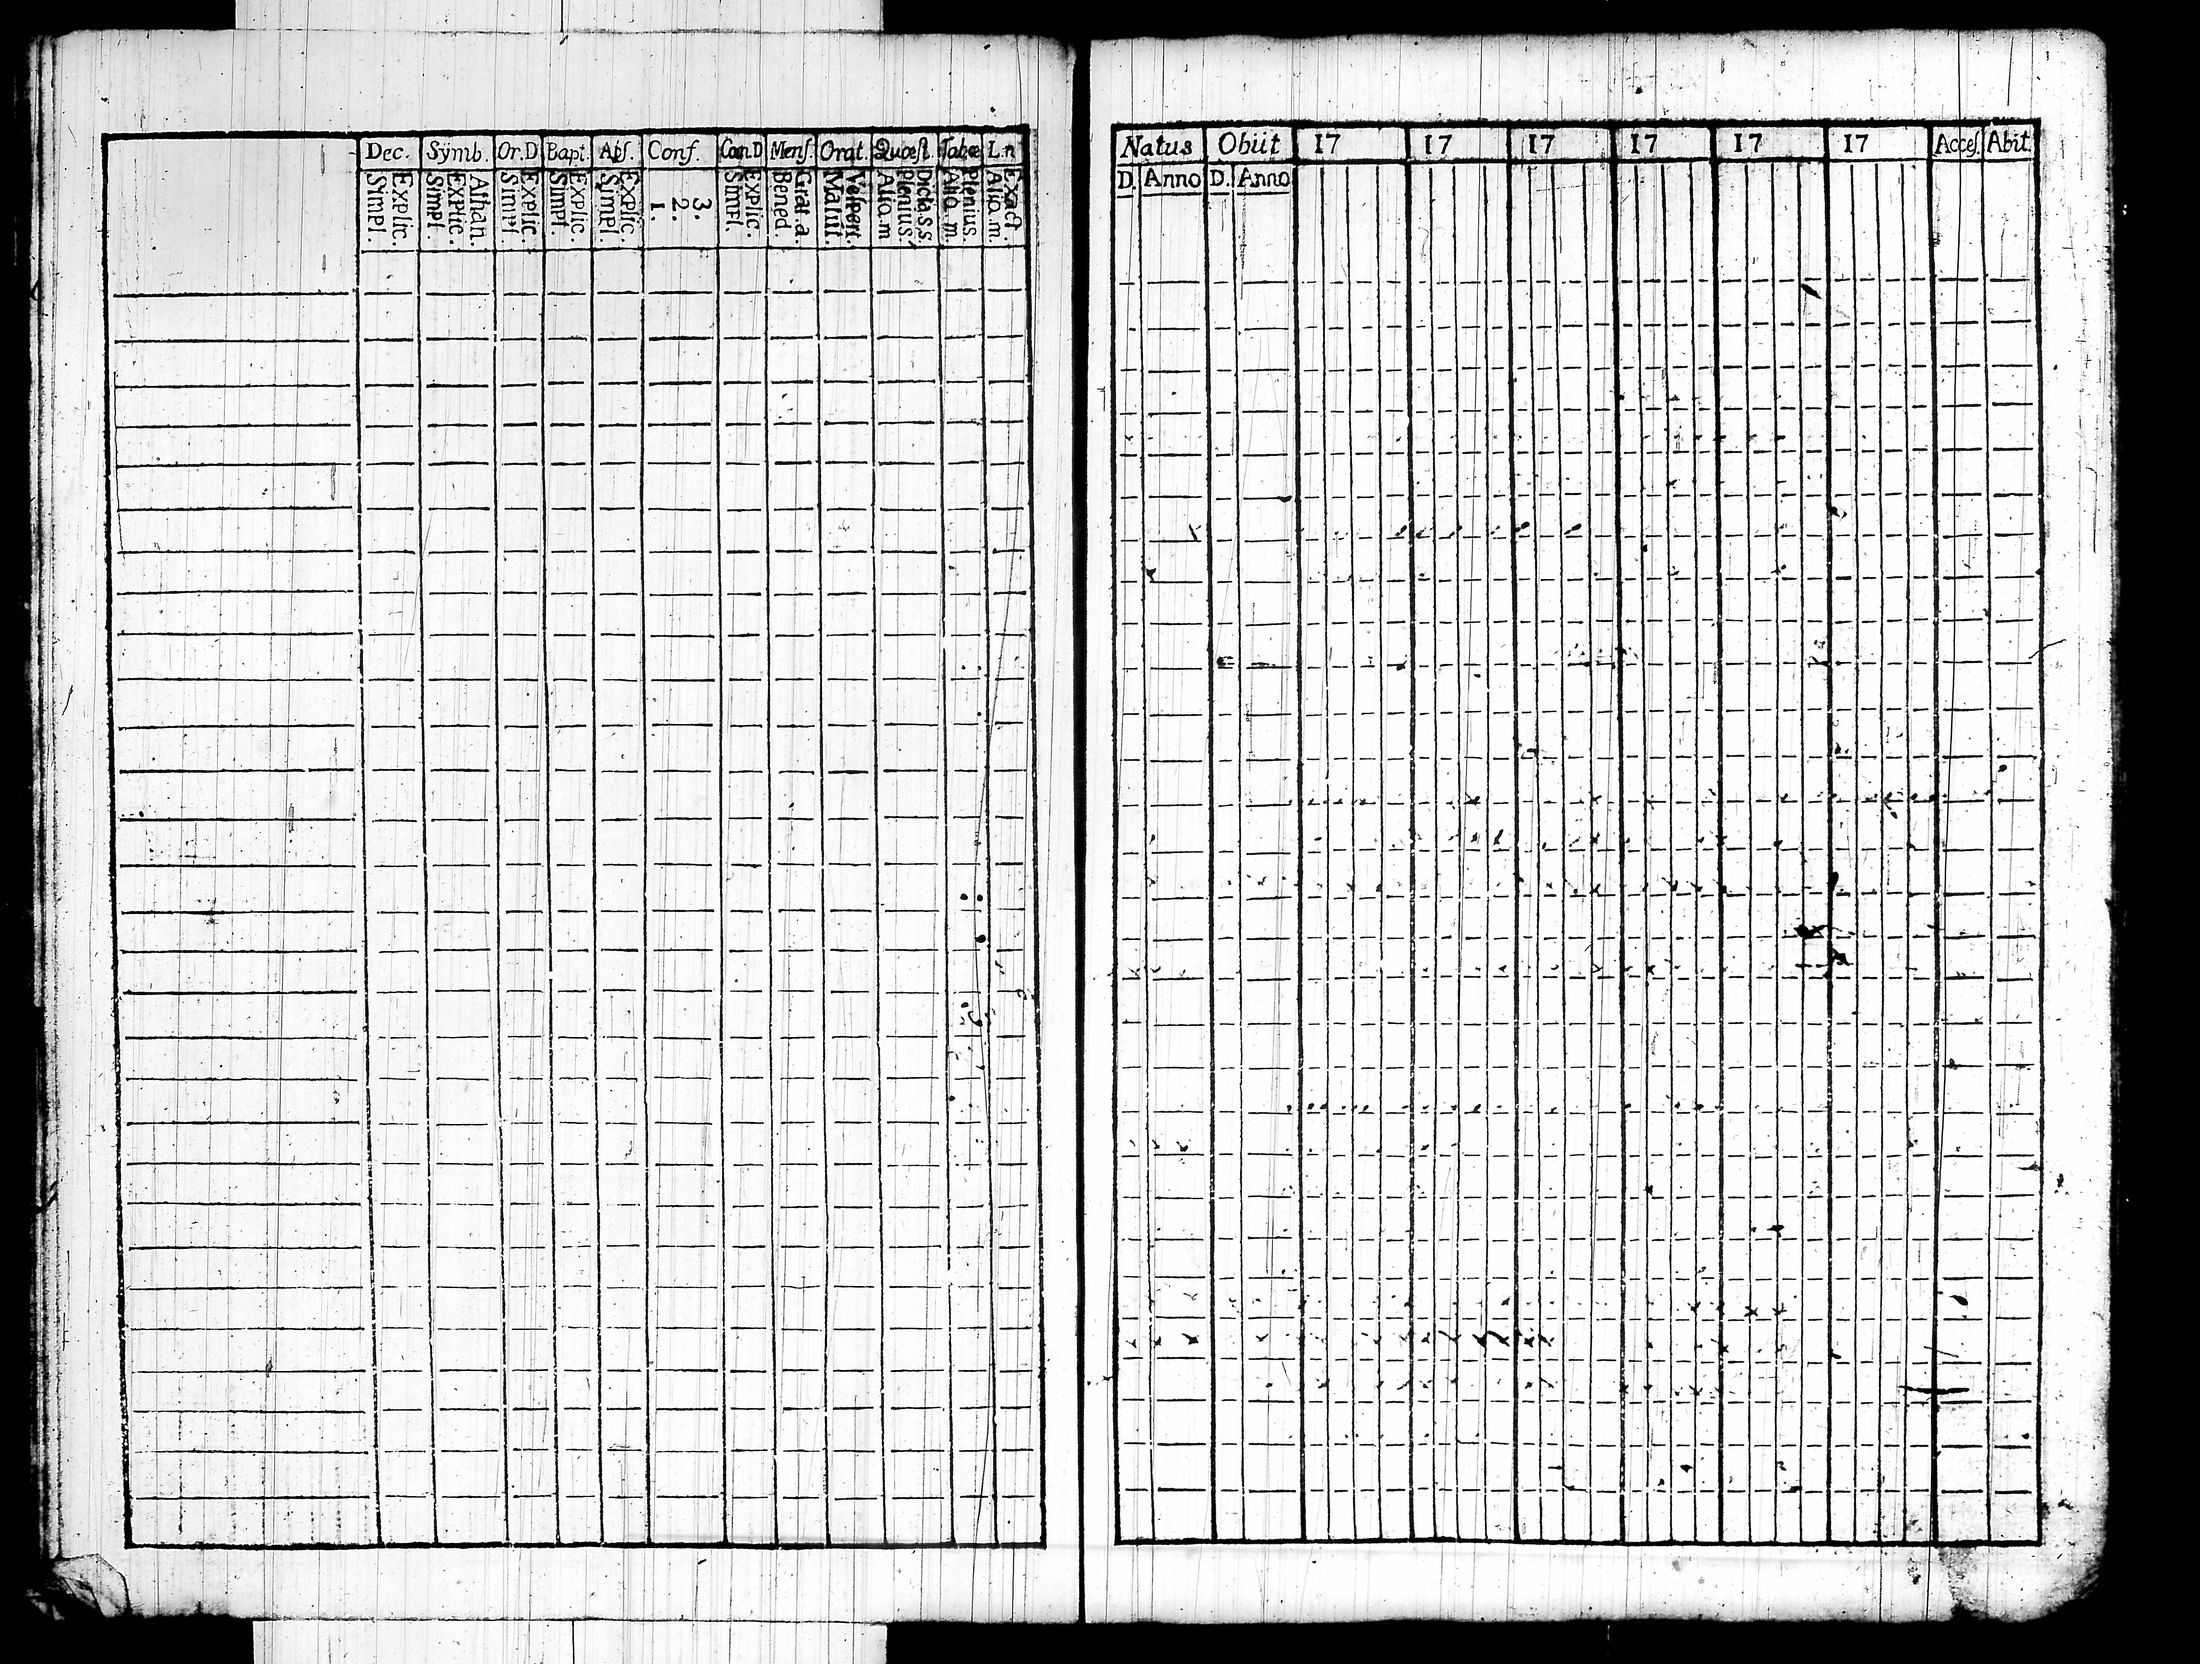 Dec. Symb. Or.D Bapt. Abs. Conf. Con.D Mens. Orat. Quæst. Tabæ L.n
Simpl. Explic. Simpl. Explic. Athan. Simpl. Explic. Simpl. Explic. Simpl. Explic. 1. 2. 3. Simpl. Explic. Bened. Grat.a. Matut. Vespert. Alio.m Plenius Dicta.s.s. Alio.m. Plenius. Alio.m. Exact.
Natus Obiit 17 17 17 17 17 17 Acces. Abit.
D. Anno D. Anno